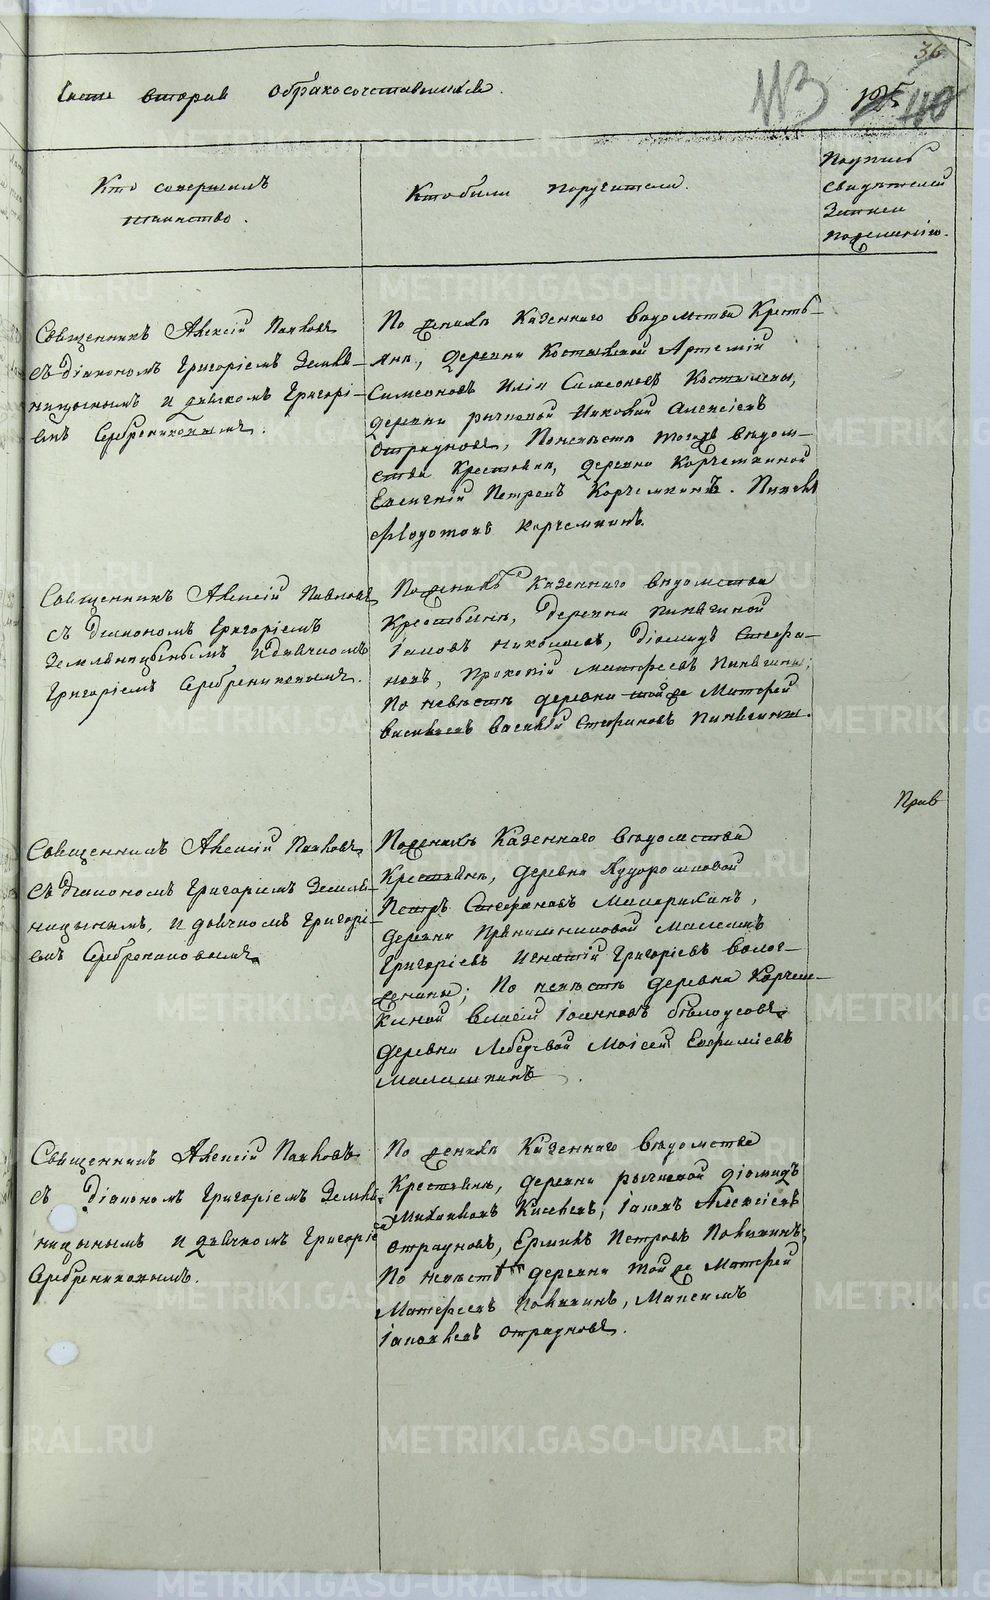 36
Часть вторая о бракосочетавшихся.
113
125
110
Кто совершалъ
таинство.
Кто были поручители.
Подпись
свидѣтелей
записи
по желанію.
Священникъ Алексій Павловъ
съ діакономъ Григоріемъ Земля-
ницынымъ и дьячкомъ Григорі-
емъ Серебрениковымъ.
По женихѣ Казеннаго вѣдомства Кресть-
яне, деревни Артемій
Симеоновъ Илія Симеоновъ
деревни Рычковой Николай Алексіевъ
Отрадновъ, По невѣстѣ тогожъ вѣдом-
ства Крестьяне, деревни Корчемкиной
Евгеній Петровъ Корчемкинъ. Павелъ
Корчемкинъ.
Священникъ Алексій Павловъ
съ діакономъ Григоріемъ
Земляницынымъ и дьячкомъ
Григоріемъ Серебрениковымъ.
По женихѣ Казеннаго вѣдомства
Крестьяне, деревни Пинягиной
Іаковъ Николаевъ, Діомидъ Стефа-
новъ, Прокопій Матфеевъ Пинягины;
По невѣстѣ деревни той же Матфей
Васильевъ Василій Стефановъ Пинягины.
Прав
Священникъ Алексій Павловъ
съ діакономъ Григоріемъ Земля-
ницынымъ, и дьячкомъ Григорі-
емъ Серебрениковымъ.
По женихѣ Казеннаго вѣдомства
Крестьяне, деревни Худорошковой
Петръ Стефановъ
деревни Прянишниковой Максимъ
Григоріевъ Игнатій Григоріевъ Волог-
жанины; По невѣстѣ деревни Корчем-
киной Власій Іоанновъ Бѣлоусовъ
деревни Лебедевой Моисей Евфиміевъ
Малашкинъ.
Священникъ Алексій Павловъ
съ діакономъ Григоріемъ Земля-
ницынымъ и дьячкомъ Григоріемъ
Серебрениковымъ.
По женихѣ Казеннаго вѣдомства
Крестьяне, деревни Рычковой Діомидъ
Михайловъ Киселевъ, Іаковъ Алексіевъ
Отрадновъ, Ермилъ Петровъ
По невѣстѣ деревни той же Матфей
Матфеевъ Максимъ
Іаковлевъ Отрадновъ.
METRIKI.GASO-URAL.RU